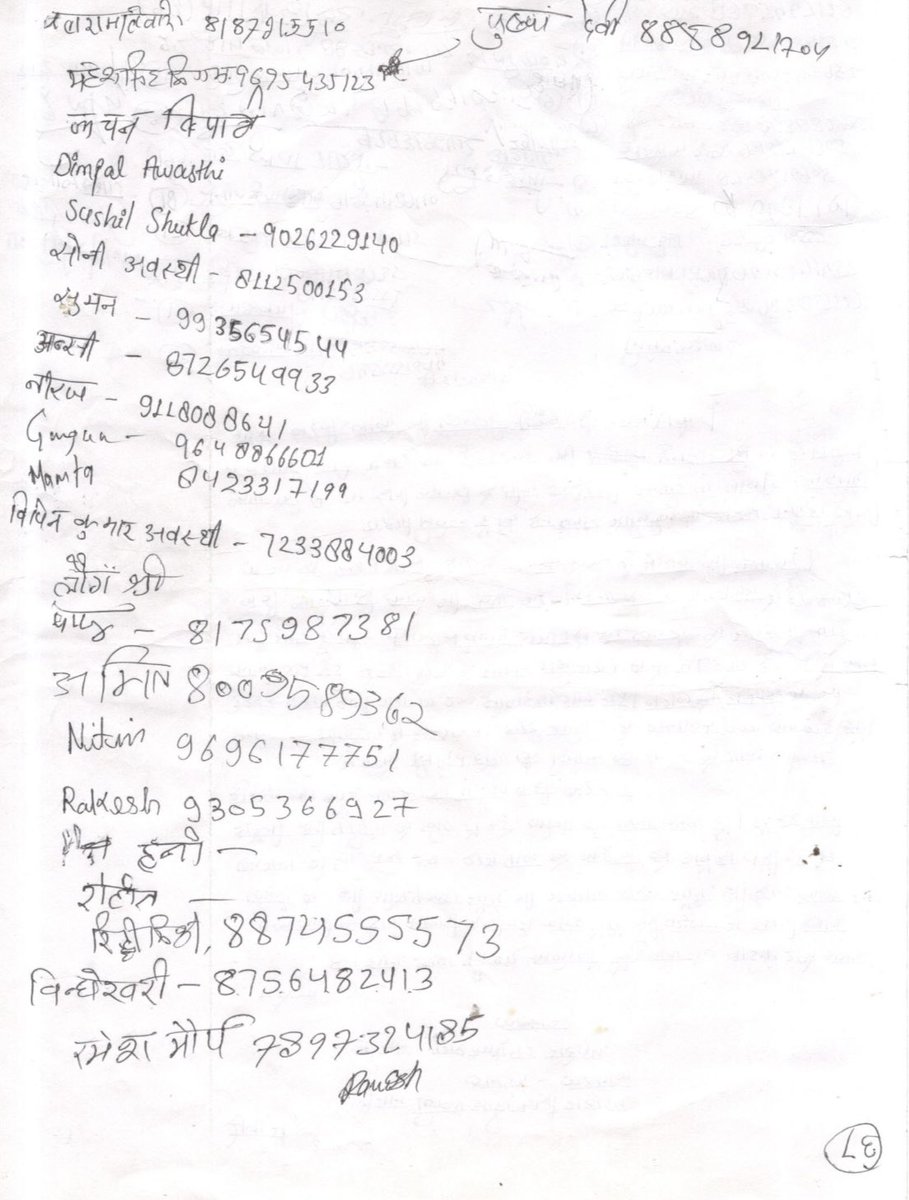 पुष्पा देवी 8858921704
8187915510
9695435123
कंचन
Dimpal Awasthi
Sushil Shukla - 9026229140
सोनी अवस्थी - 8112500153
सुमन - 9935654544
- 8726549933
नीरज - 9118088641
Gungun - 9648866601
Mamta 8423317199
विपिन कुमार अवस्थी - 7233884003
लौंग श्री
- 8175987381
8009589362
Nitin 9696177751
Rakesh 9305366927
हनी -
रोहित -
8874555573
विन्धेश्वरी - 8756482413
रमेश मौर्य 7897324185
Ramesh
37